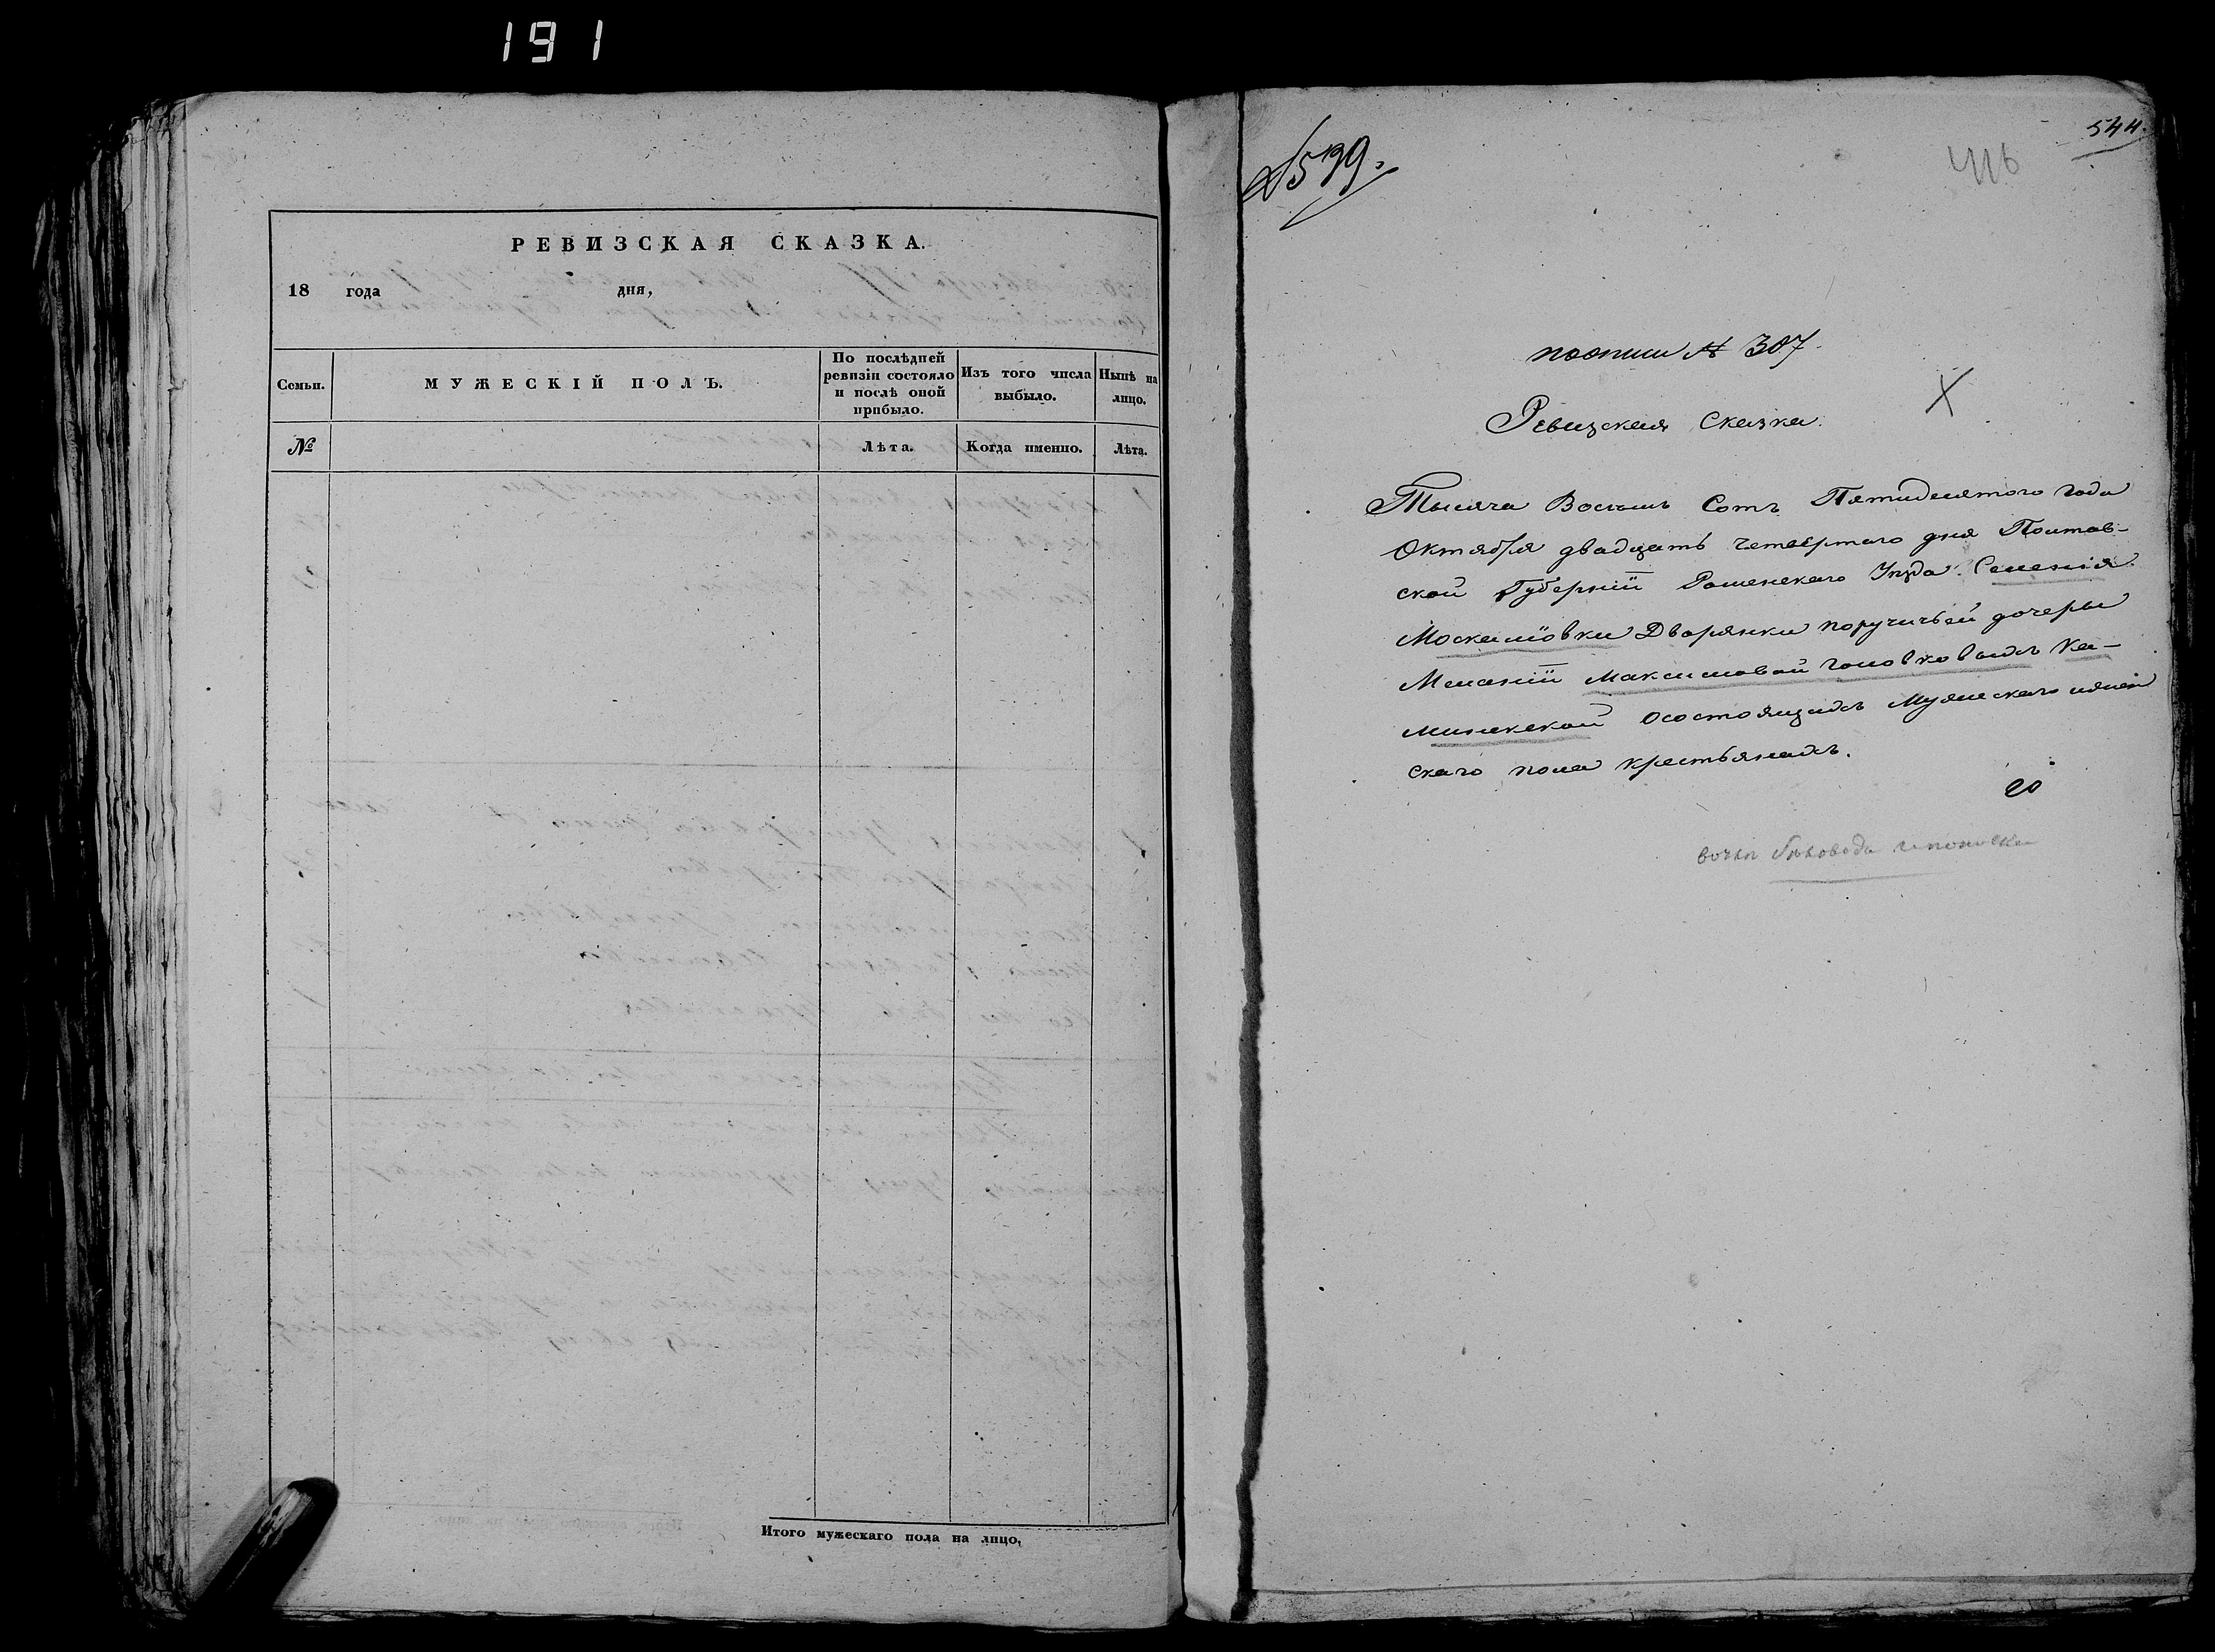 191
РЕВИЗСКАЯ СКАЗКА.
18 года дня,
Семьи. МУЖЕСКІЙ ПОЛЪ. По послѣдней ревизіи состояло и послѣ оной прибыло. Изъ того числа выбыло. Нынѣ на лицо.
№ Лѣта. Когда именно. Лѣта.
Итого мужескаго пола на лицо,
544.
поописи № 307.
Ревизская Сказка.
Тысяча Восемь Сотъ Пятидесятого года
Октября двадцать четвертаго дня Полтав-
ской Губерніи Роменскаго Уезда. Селенія
Москалiовки Дворянки поручичьей дочеры
Меланіи Максимовой головковыхъ Ка-
минской осостоящихъ Мужескаго иженъ
скаго пола крестьянахъ.